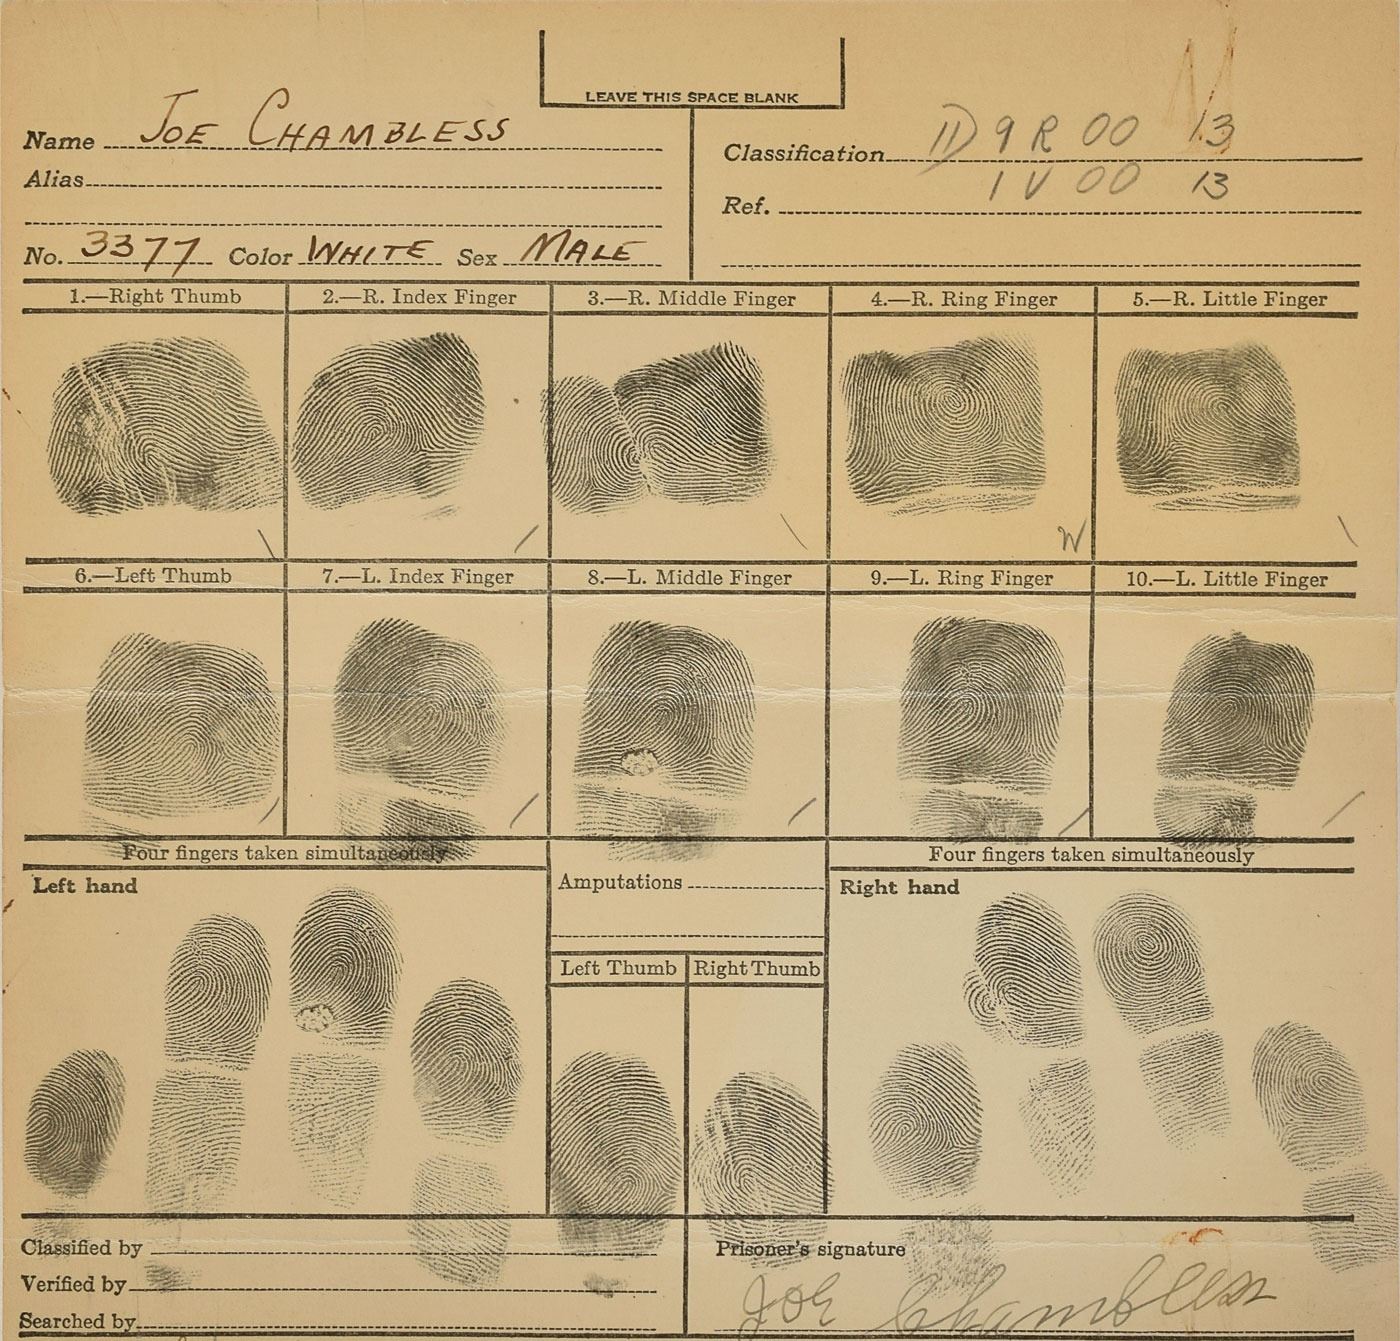 LEAVE THIS SPACE BLANK
Name JOE CHAMBLESS
Classification 9 R OO 13
1 V OO 13
Alias
Ref.
No. 3377 Color WHITE Sex MALE
1.—Right Thumb 2.—R. Index Finger 3.—R. Middle Finger 4.—R. Ring Finger 5.—R. Little Finger
\ / \ W \
6.—Left Thumb 7.—L. Index Finger 8.—L. Middle Finger 9.—L. Ring Finger 10.—L. Little Finger
/ / / / /
Four fingers taken simultaneously Four fingers taken simultaneously
Left hand Amputations Right hand
Left Thumb Right Thumb
Classified by Prisoner's signature
Verified by Joe Chambless
Searched by